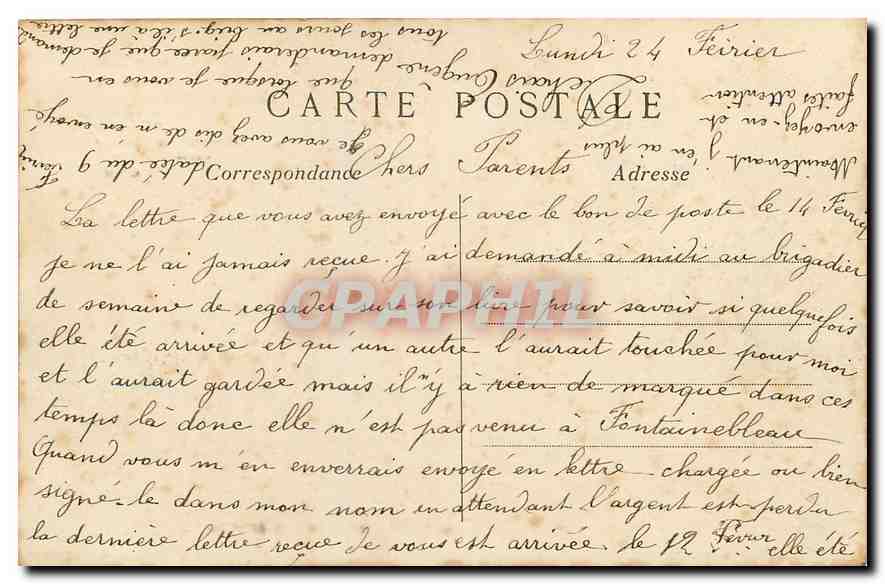 Lundi 24 Février
CARTE POSTALE
Correspondance
Adresse
Chers Parents
La lettre que vous avez envoyé avec le bon de poste le 14 Février
je ne l'ai jamais reçue. J'ai demandé à midi au brigadier
de semaine de regarder sur son livre pour savoir si quelquefois
elle été arrivée et qu'un autre l'aurait touchée pour moi
et l'aurait gardée mais il n'y à rien de marqué dans ces
temps là donc elle n'est pas venu à Fontainebleau
Quand vous m'en enverrais envoyé en lettre chargée ou bien
signé-le dans mon nom en attendant l'argent est perdu
la dernière lettre reçue de vous est arrivée le 12 Fevrier elle été
datée du 9 Février
je vous avez dis de n'en envoyé
que lorsque je vous en
demanderais parce que je demande
tous les jours au brig. s'il a une lettre
Eugène
Maintenant j'en ai plus
envoyez-en et
faites attention
CPAPHIL